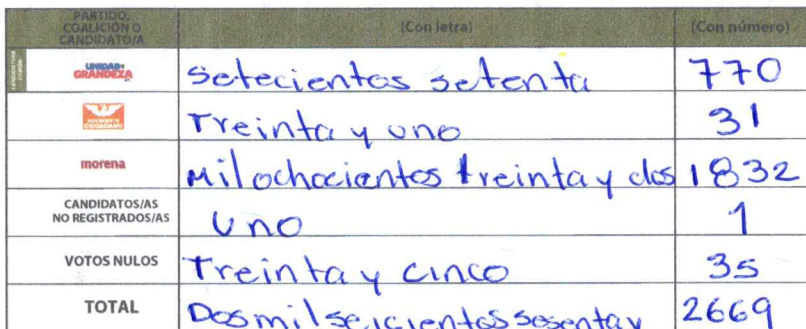 PARTIDO, COALICIÓN O CANDIDATO/A (Con letra) (Con número)
CANDIDATURA COMÚN UNIDAD Y GRANDEZA setecientos setenta 770
MOVIMIENTO CIUDADANO Treinta y uno 31
morena Mil ochocientos treinta y dos 1832
CANDIDATOS/AS NO REGISTRADOS/AS uno 1
VOTOS NULOS Treinta y cinco 35
TOTAL Dos mil seicientos sesenta y 2669